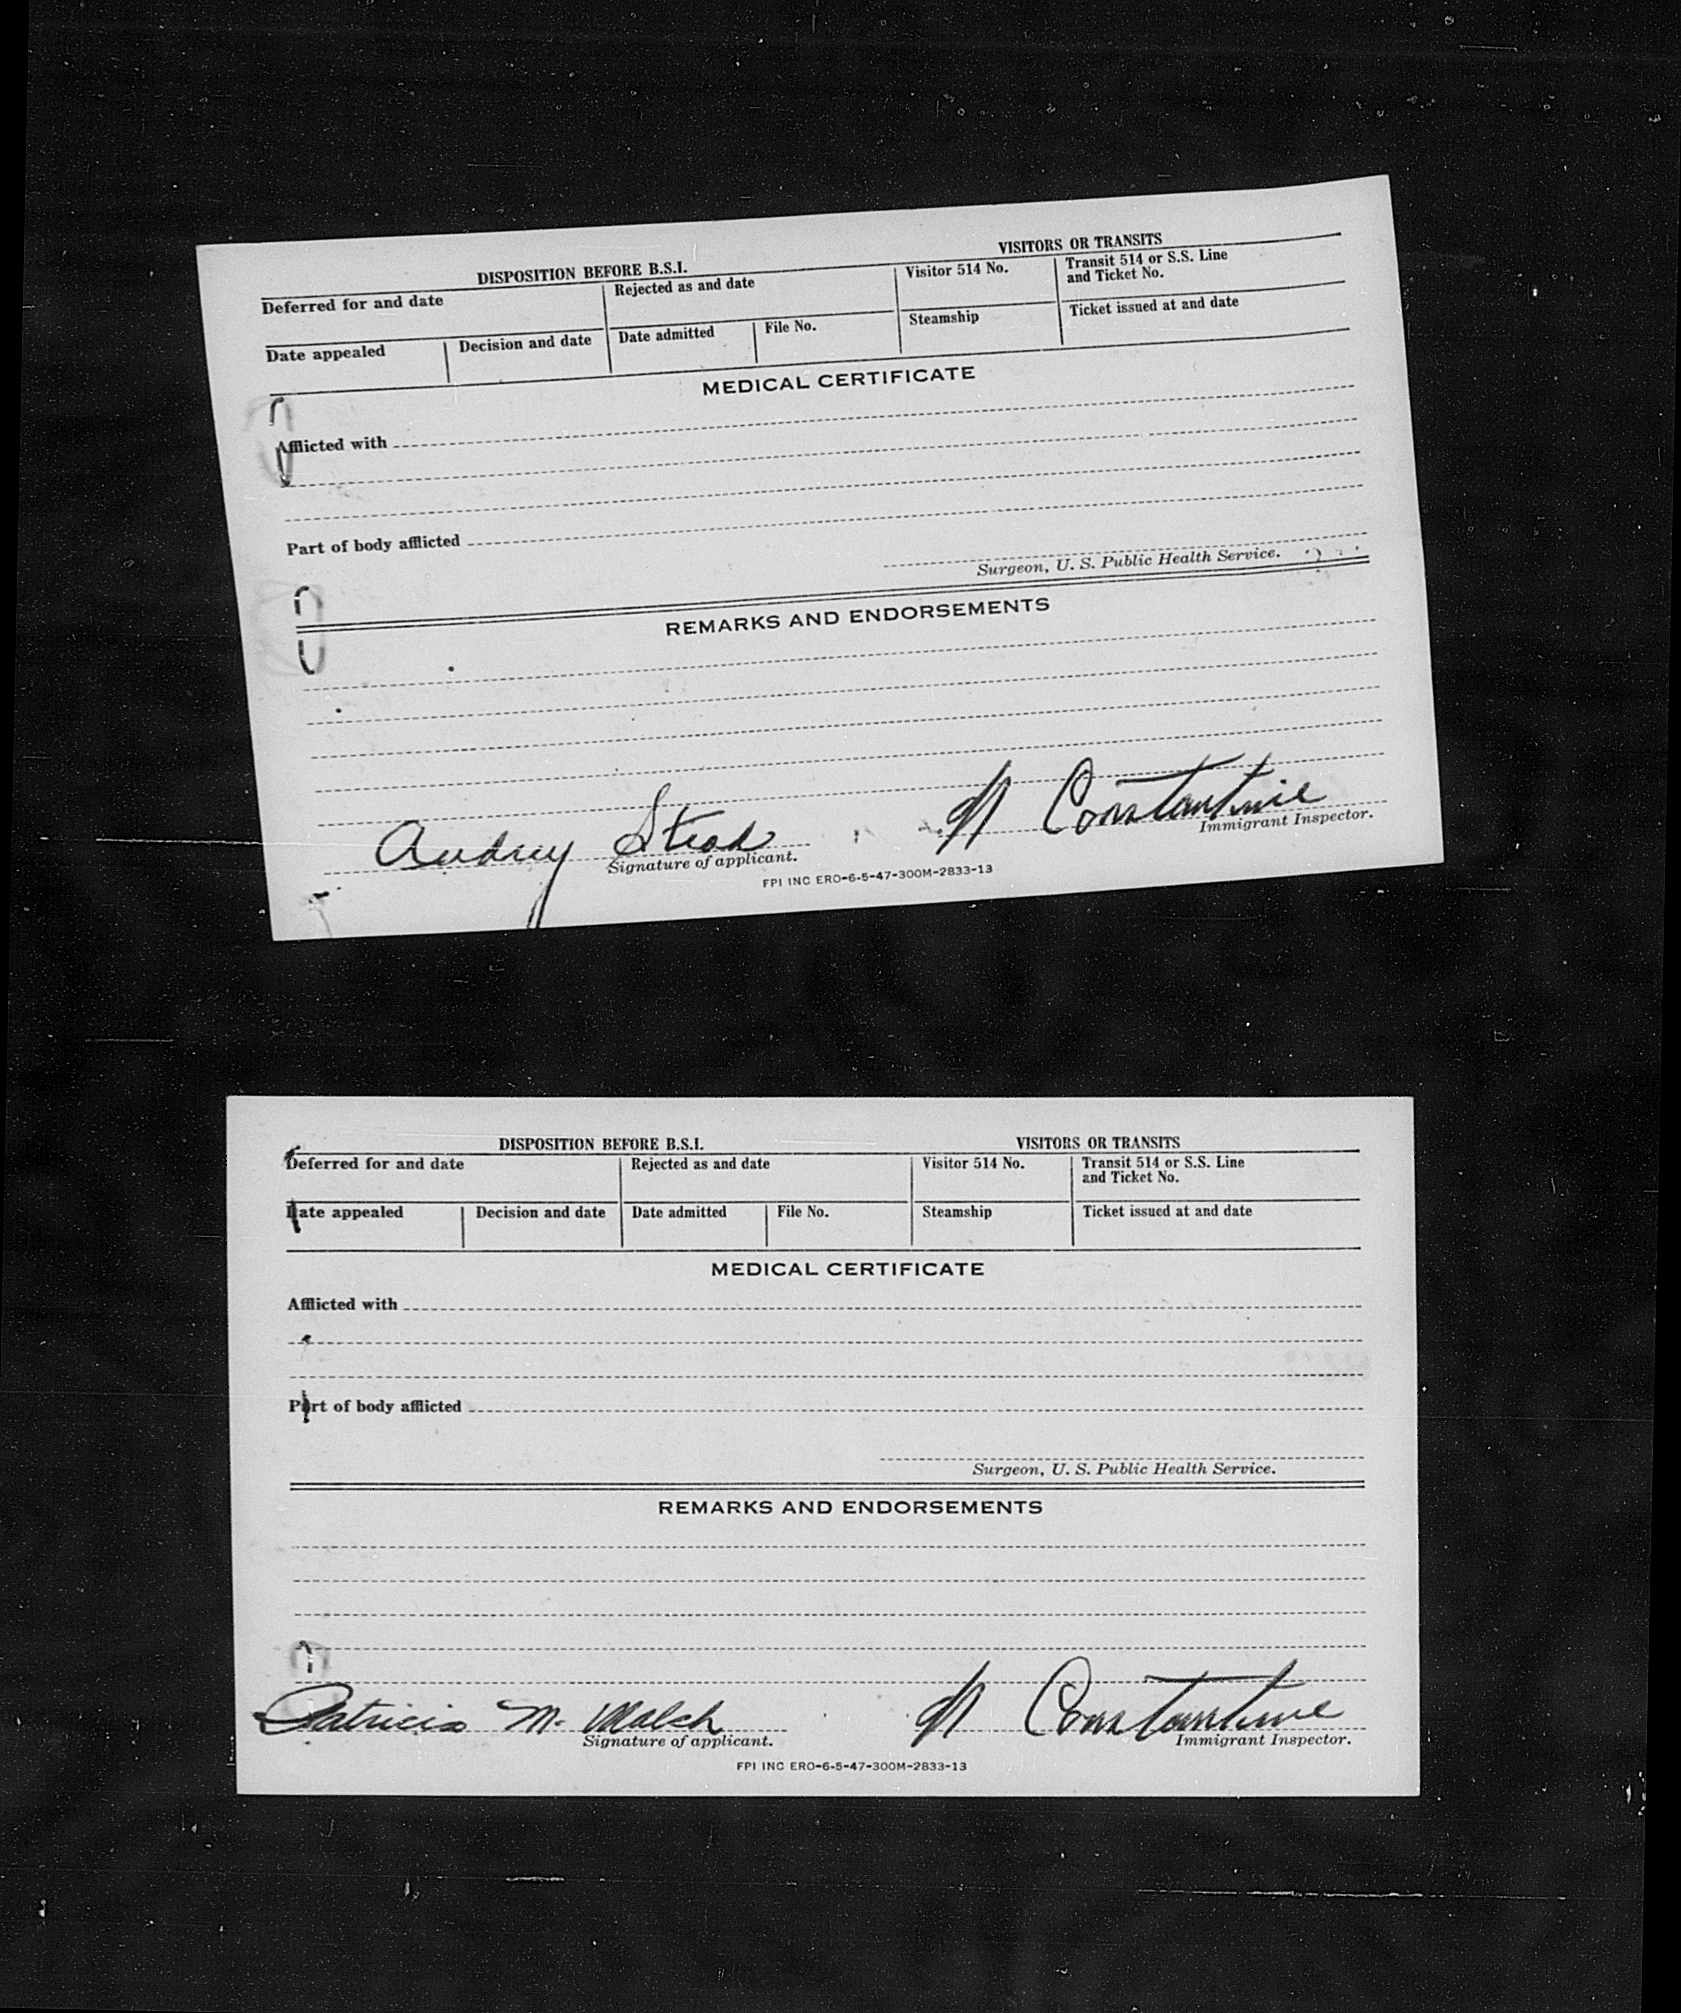 DISPOSITION BEFORE B.S.I. VISITORS OR TRANSITS
Deferred for and date Rejected as and date Visitor 514 No. Transit 514 or S.S. Line
and Ticket No.
Date appealed Decision and date Date admitted File No. Steamship Ticket issued at and date
MEDICAL CERTIFICATE
Afflicted with
Part of body afflicted
Surgeon, U. S. Public Health Service.
REMARKS AND ENDORSEMENTS
Audrey Stead N Constantine
Signature of applicant. Immigrant Inspector.
FPI INC ERO-6-5-47-300M-2833-13
DISPOSITION BEFORE B.S.I. VISITORS OR TRANSITS
Deferred for and date Rejected as and date Visitor 514 No. Transit 514 or S.S. Line
and Ticket No.
Date appealed Decision and date Date admitted File No. Steamship Ticket issued at and date
MEDICAL CERTIFICATE
Afflicted with
Part of body afflicted
Surgeon, U. S. Public Health Service.
REMARKS AND ENDORSEMENTS
Patricia M. Walch N Constantine
Signature of applicant. Immigrant Inspector.
FPI INC ERO-6-5-47-300M-2833-13